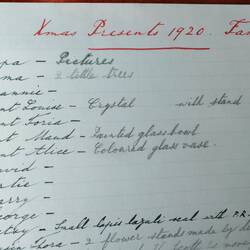 Xmas Presents 1920. Fa
pa - Pictures
ma - 2 little trees
annie -
nt Louise - Crystal with stand
nt Toria -
nt Maud - Painted glass bowl
nt Alice - Coloured glass vase.
avid -
rtie -
arry -
eorge -
- Small lapis lazuli seal with
Flora - 2 flower stands made by